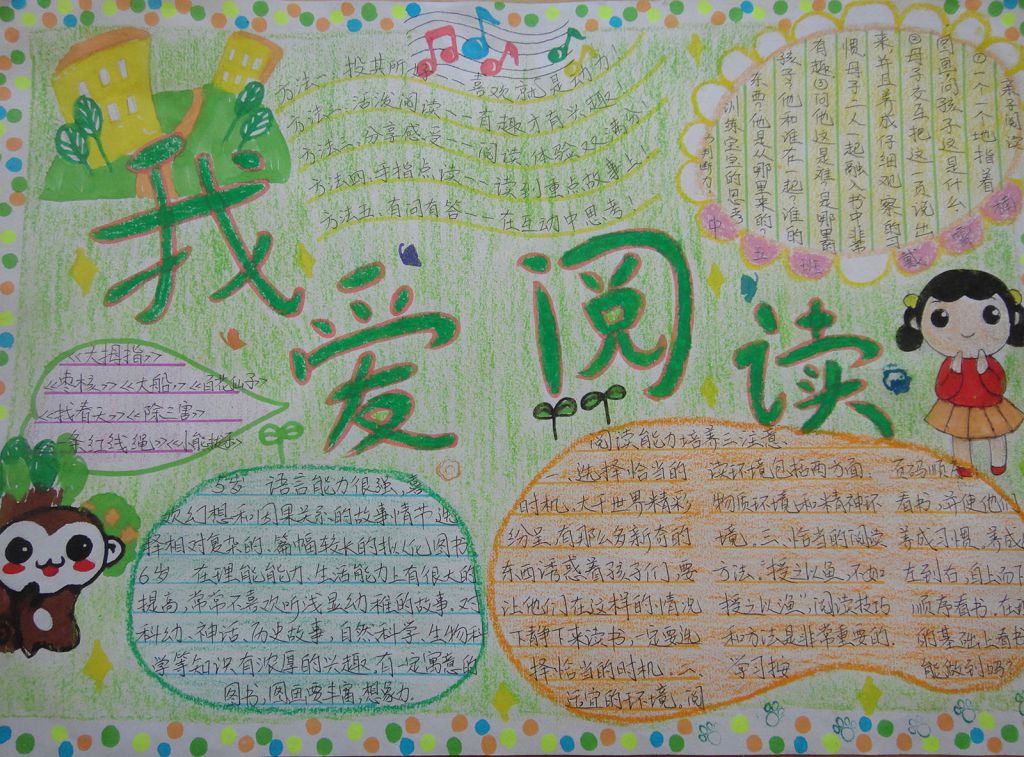 我爱阅读
方法一、投其所好 喜欢就是动力！
方法二、活泼阅读——有趣才有兴趣！
方法三、分享感受——阅读、体验双满分！
方法四、手指点读——读到重点故事上！
方法五、有问有答——在互动中思考！
亲子阅读
①一个一个地指着
图画问孩子这是什么
②母子交互把这一页说出
来,并且养成仔细观察的习
惯,母子二人一起融入书中非常
有趣③问他这是谁?是哪里的
孩子?他和谁在一起?谁的
东西?他是从哪里来的?
训练宝宝的思考
判断力。
中五班
《大拇指》
《枣核》《大船》《百花仙子》
《找春天》《除三害》
一条红线绳》《小能
5岁 语言能力很强,喜
欢幻想和因果关系的故事情节,选
择相对复杂的、篇幅较长的拟人化图书
6岁 在理能能力、生活能力上有很大的
提高,常常不喜欢听浅显幼稚的故事.对
科幻、神话、历史故事,自然科学、生物科
学等知识有浓厚的兴趣.有一定寓意的
图书,图画要丰富,想象力.
阅读能力培养三注意
一、选择恰当的
时机,大千世界精彩
纷呈,有那么多新奇的
东西诱惑着孩子们,要
让他们在这样的情况
下静下来读书,一定要选
择恰当的时机,二、
乐空的环境,阅
读环境包括两方面、
物质环境和精神环
境,三、恰当的阅读
方法,"授之以鱼,不如
授之以渔",阅读技巧
和方法是非常重要的.
学习按
页码顺序
看书,并使他们
养成习惯,养成
左到右,自上而下
顺序看书,在
的基础上看书
能做到吗?